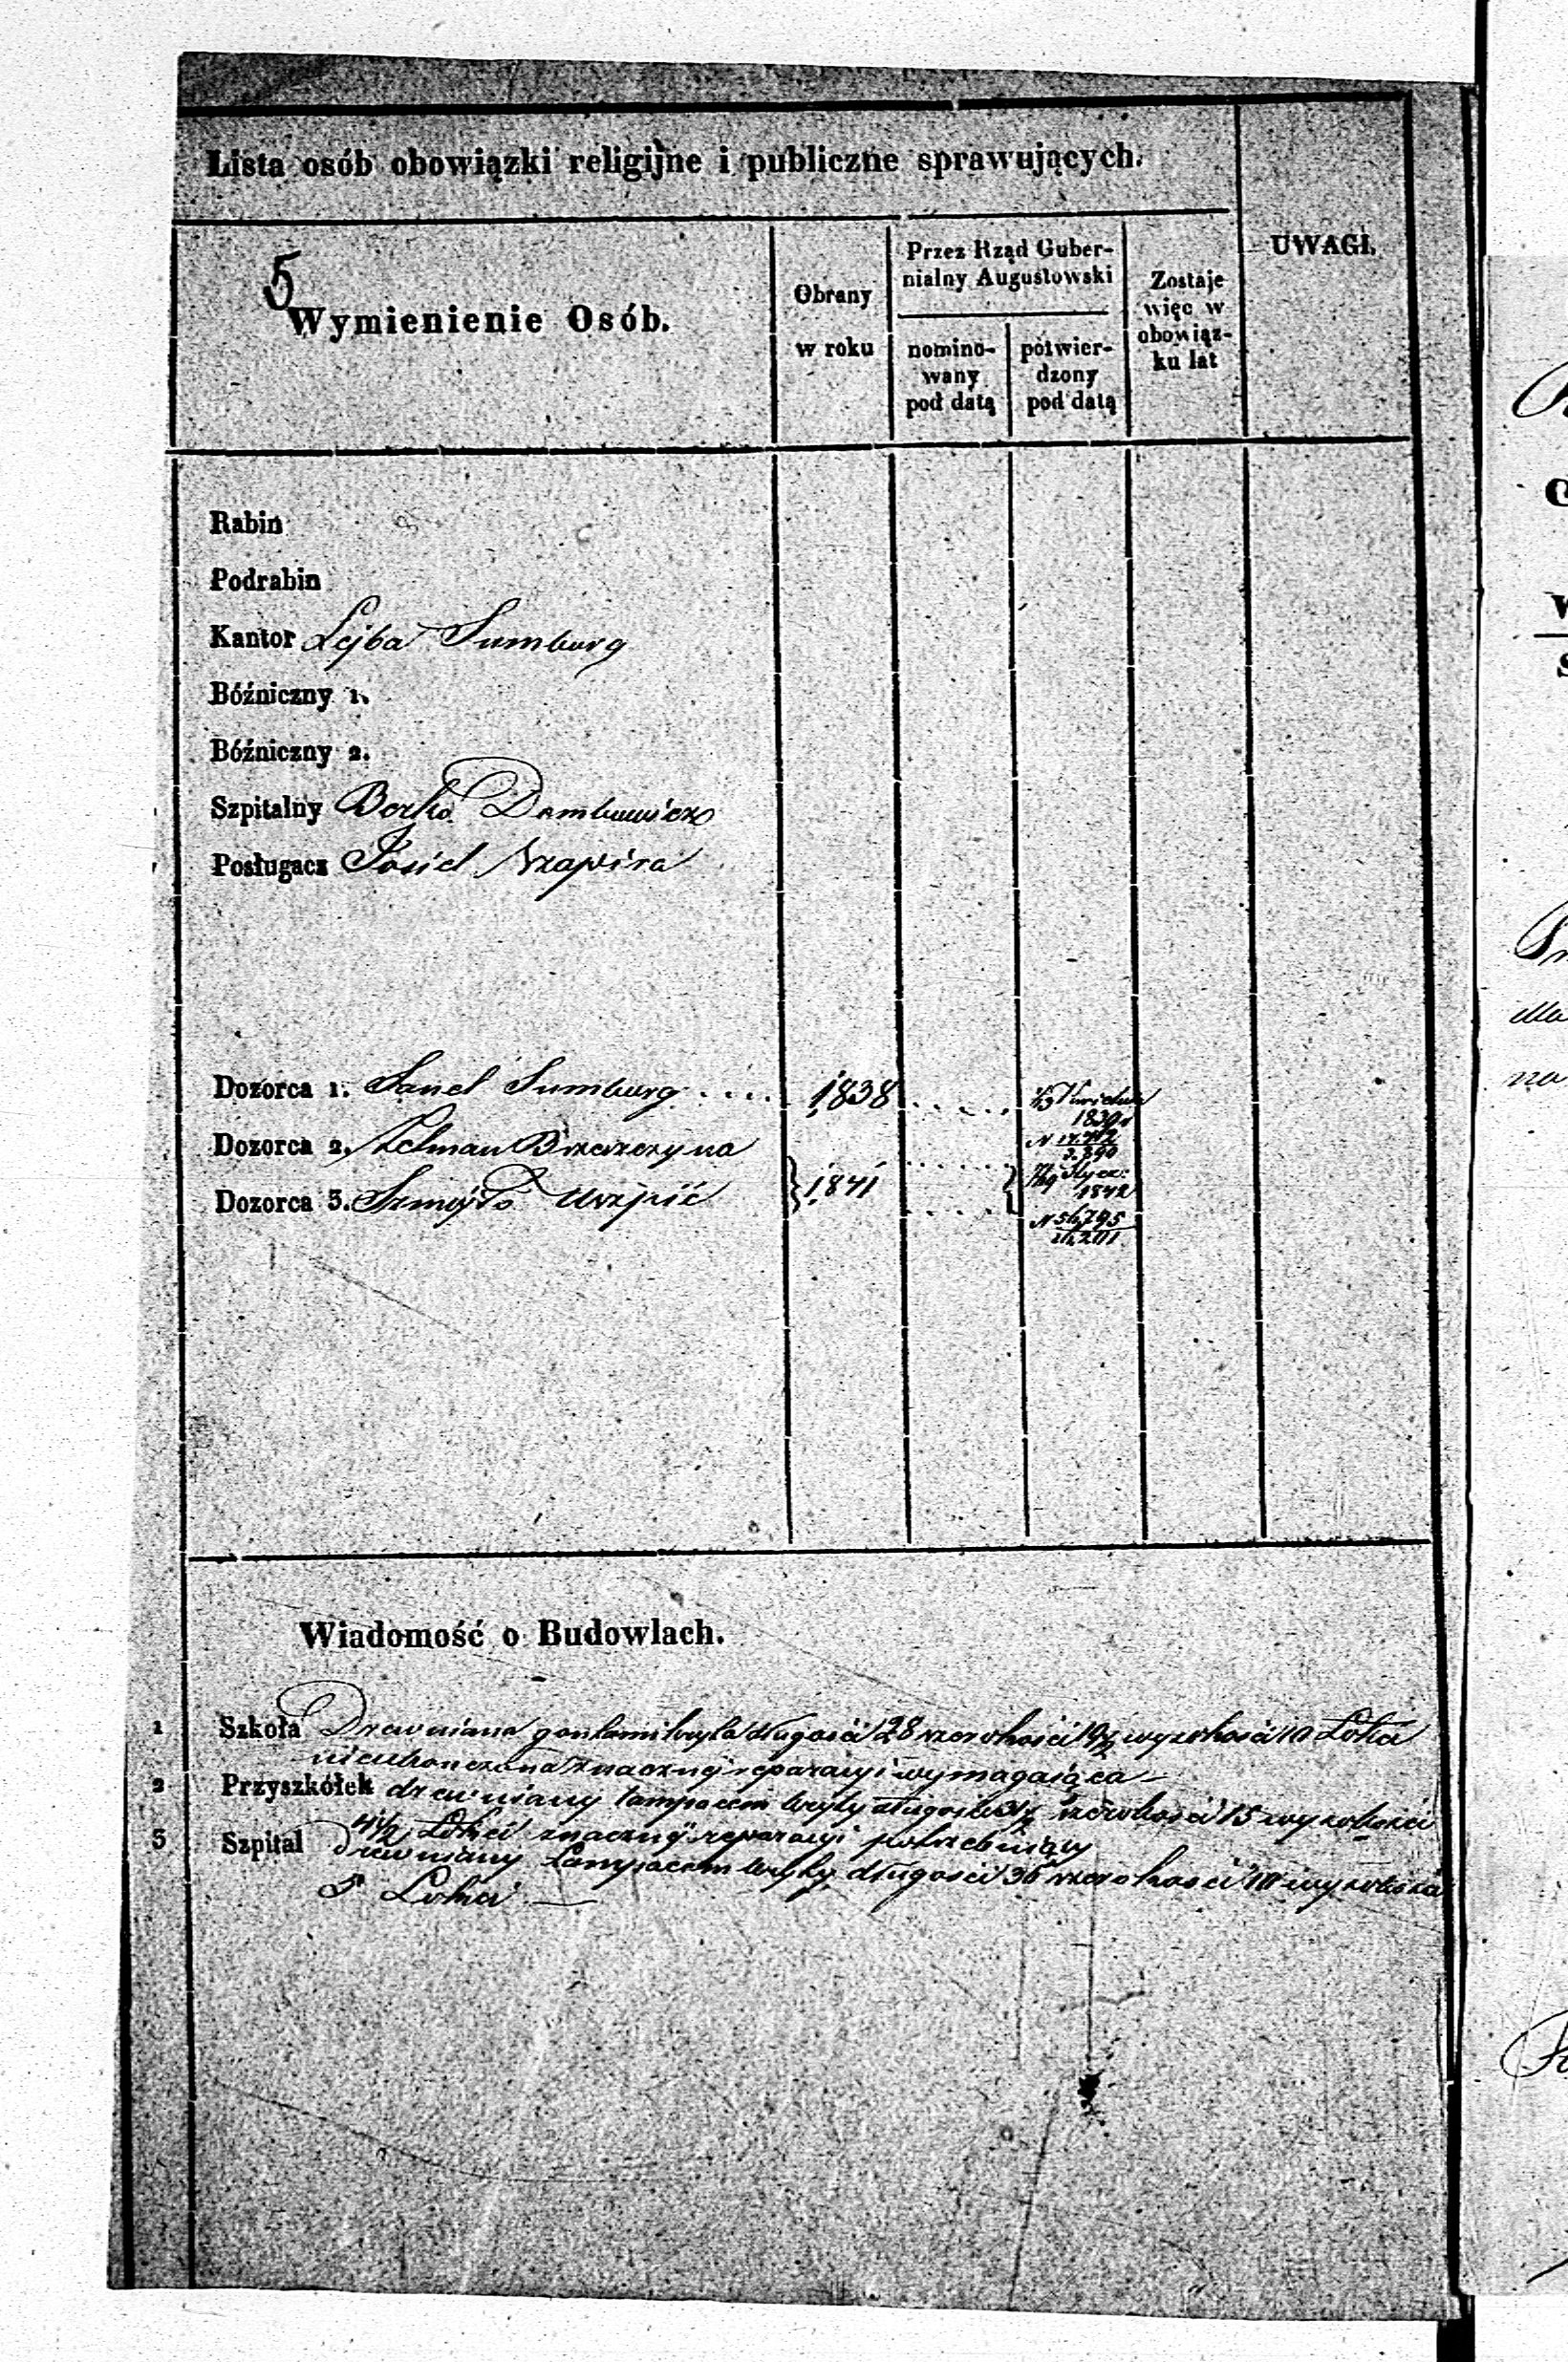 Lista osób obowiązki religijne i publiczne sprawujących.
UWAGI.
5
Wymienienie Osób.
Obrany
w roku
Przez Rząd Guber-
nialny Augustowski
nomino-
wany
pod datą
potwier-
dzony
pod datą
Zostaje
więc w
obowiąz-
ku lat
Rabin
Podrabin
Kantor Lejba Sumburg
Bóźniczny 1.
Bóźniczny 2.
Szpitalny Berko
Posługacz Josiel Szapira
Dozorca 1. Sumburg .... 1838 .....
1839
Dozorca 2. Zelman Brzezczyna
Dozorca 3. Szmojło
1841
Stycz:
1842
N 56,795
Wiadomość o Budowlach.
1 Szkoła Drewniana gontami kryta długości 28 szerokości 19½ wysokości 10 Łokci
nieukończona znacznej reparacyi wymagająca —
2 Przyszkółek drewniany kryty długości szerokości 15 wysokości
4½ Łokci znacznej reparacyi potrzebujący
3 Szpital Drewniany kryty długości 36 szerokości 10 wysokości
5 Łokci —